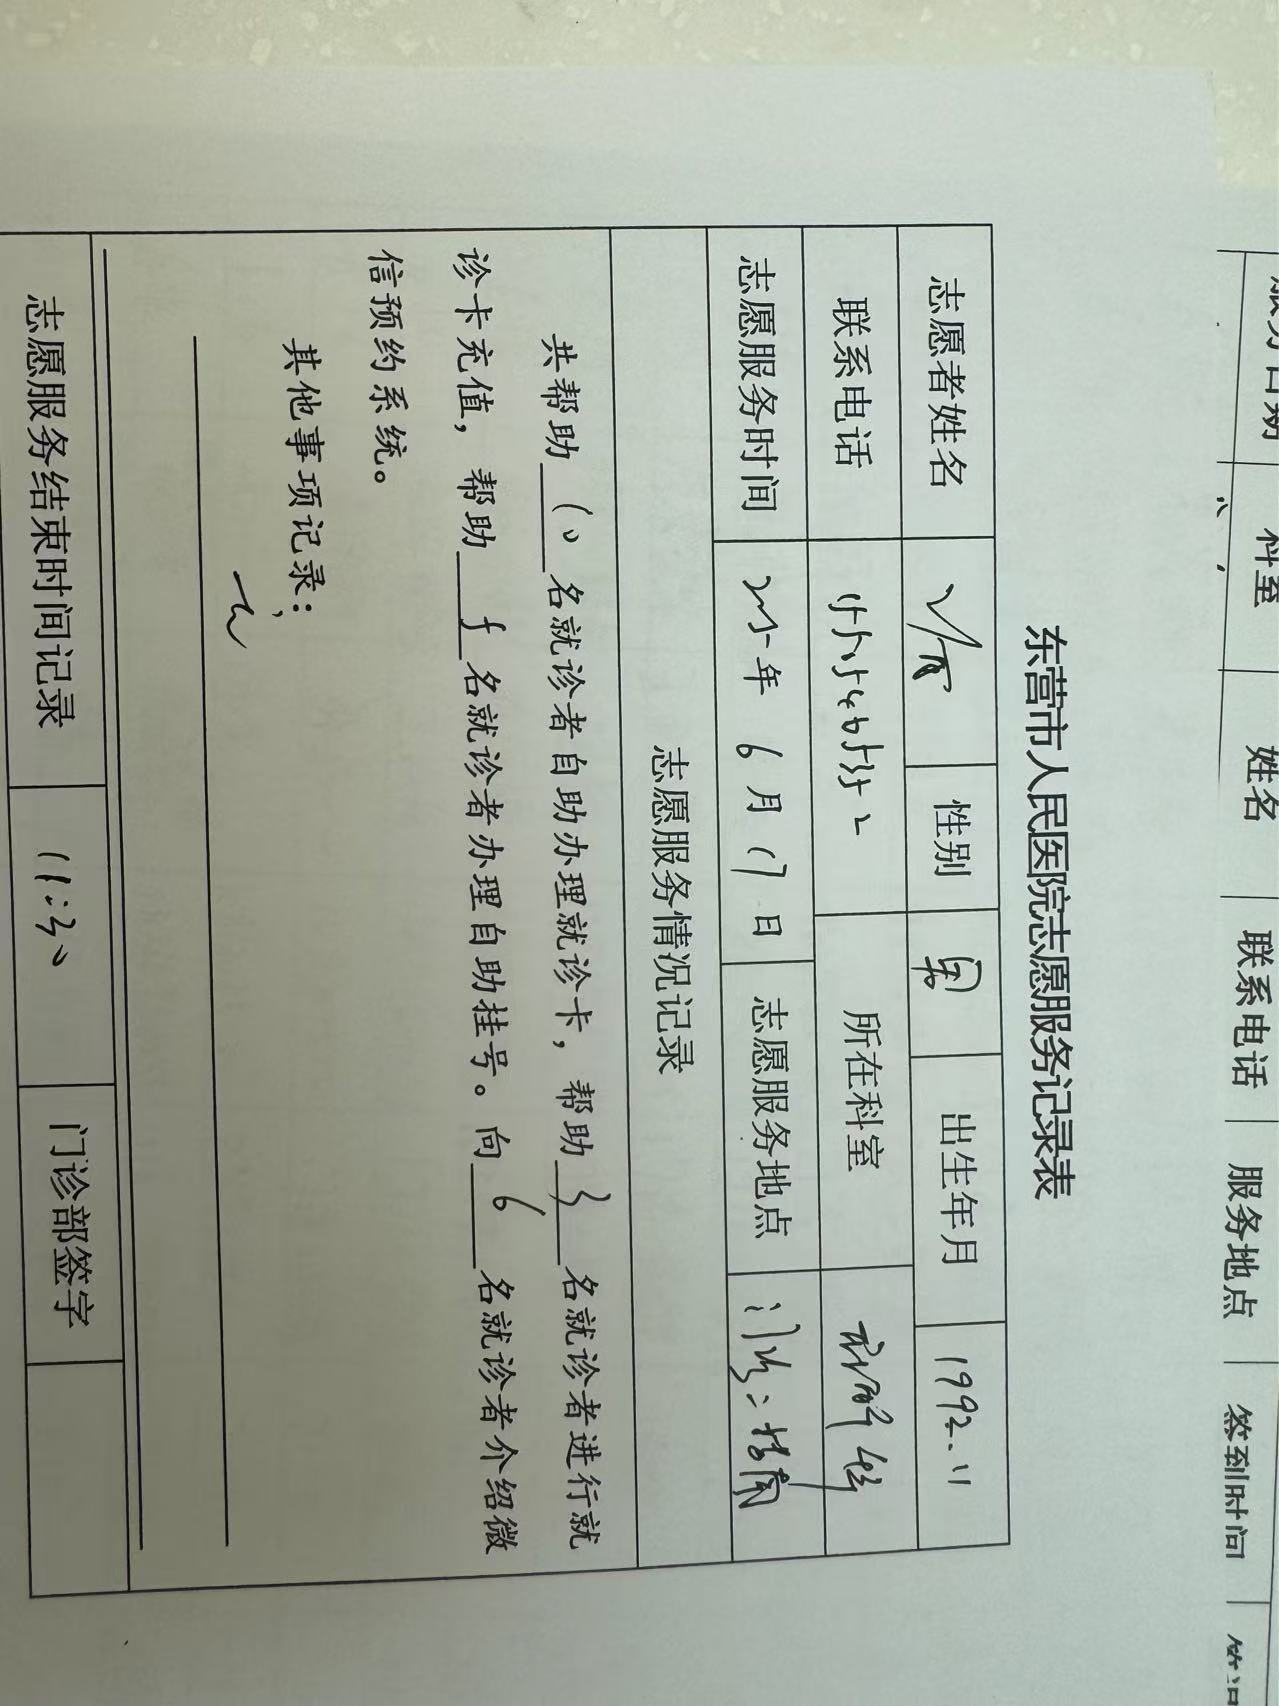 服务日期 科室 姓名 联系电话 服务地点 签到时间
东营市人民医院志愿服务记录表
志愿者姓名 性别 男 出生年月 1992.11
联系电话 所在科室
志愿服务时间 年 6 月 17 日 志愿服务地点
志愿服务情况记录
共帮助 10 名就诊者自助办理就诊卡，帮助 3 名就诊者进行就
诊卡充值，帮助 名就诊者办理自助挂号。向 6 名就诊者介绍微
信预约系统。
其他事项记录：
无
志愿服务结束时间记录 11:30 门诊部签字